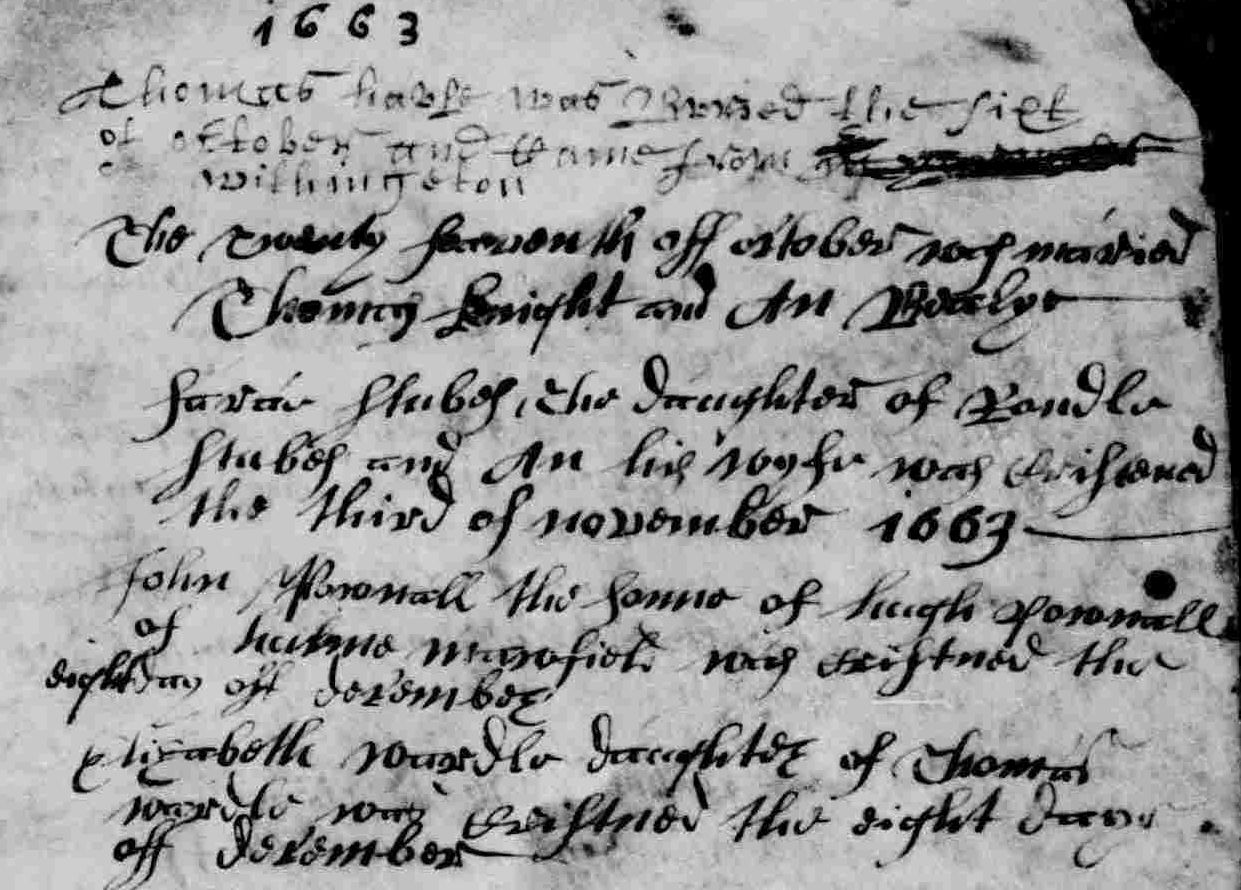 1663
Thomas was Buried the sixt
of october and Came from
of withington
The twenty seaventh off october was maried
Thomas Knight and An
Sarae Stubes the daughter of Randle
Stubes and An his wyfe was Cristened
the third of november 1663
John Pownall the sonne of hugh pownall
of hulme was Cristned the
eight day off december
Elizabeth wardle daughter of Thomas
wardle was Cristned the eight daye
off december